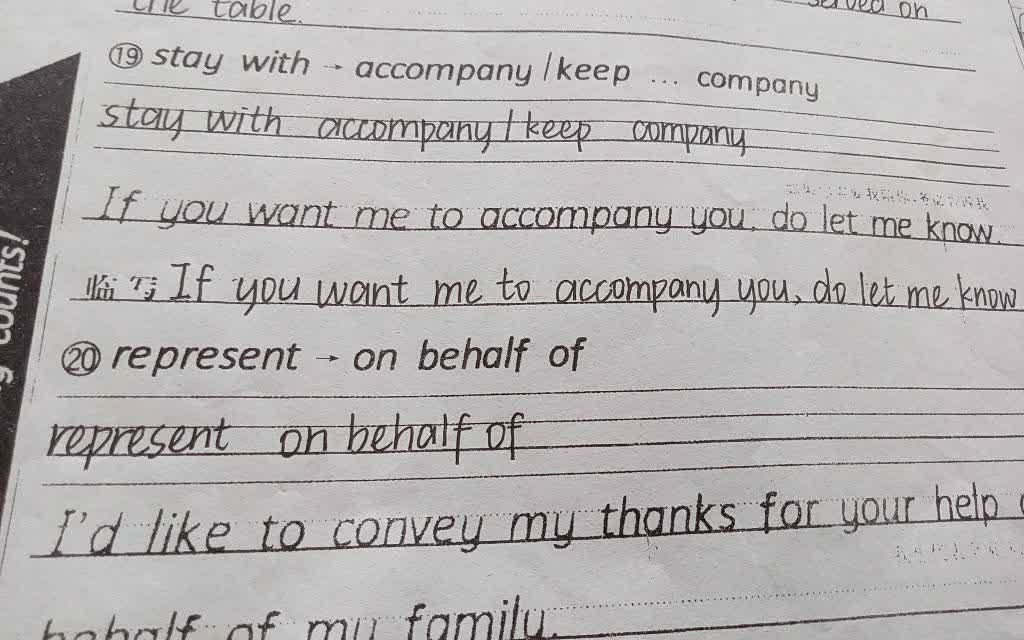 the table.
served on
⑲ stay with → accompany / keep ... company
stay with accompany / keep company
If you want me to accompany you, do let me know.
临写 If you want me to accompany you, do let me know
⑳ represent → on behalf of
represent on behalf of
I'd like to convey my thanks for your help
behalf of my family.
counts!